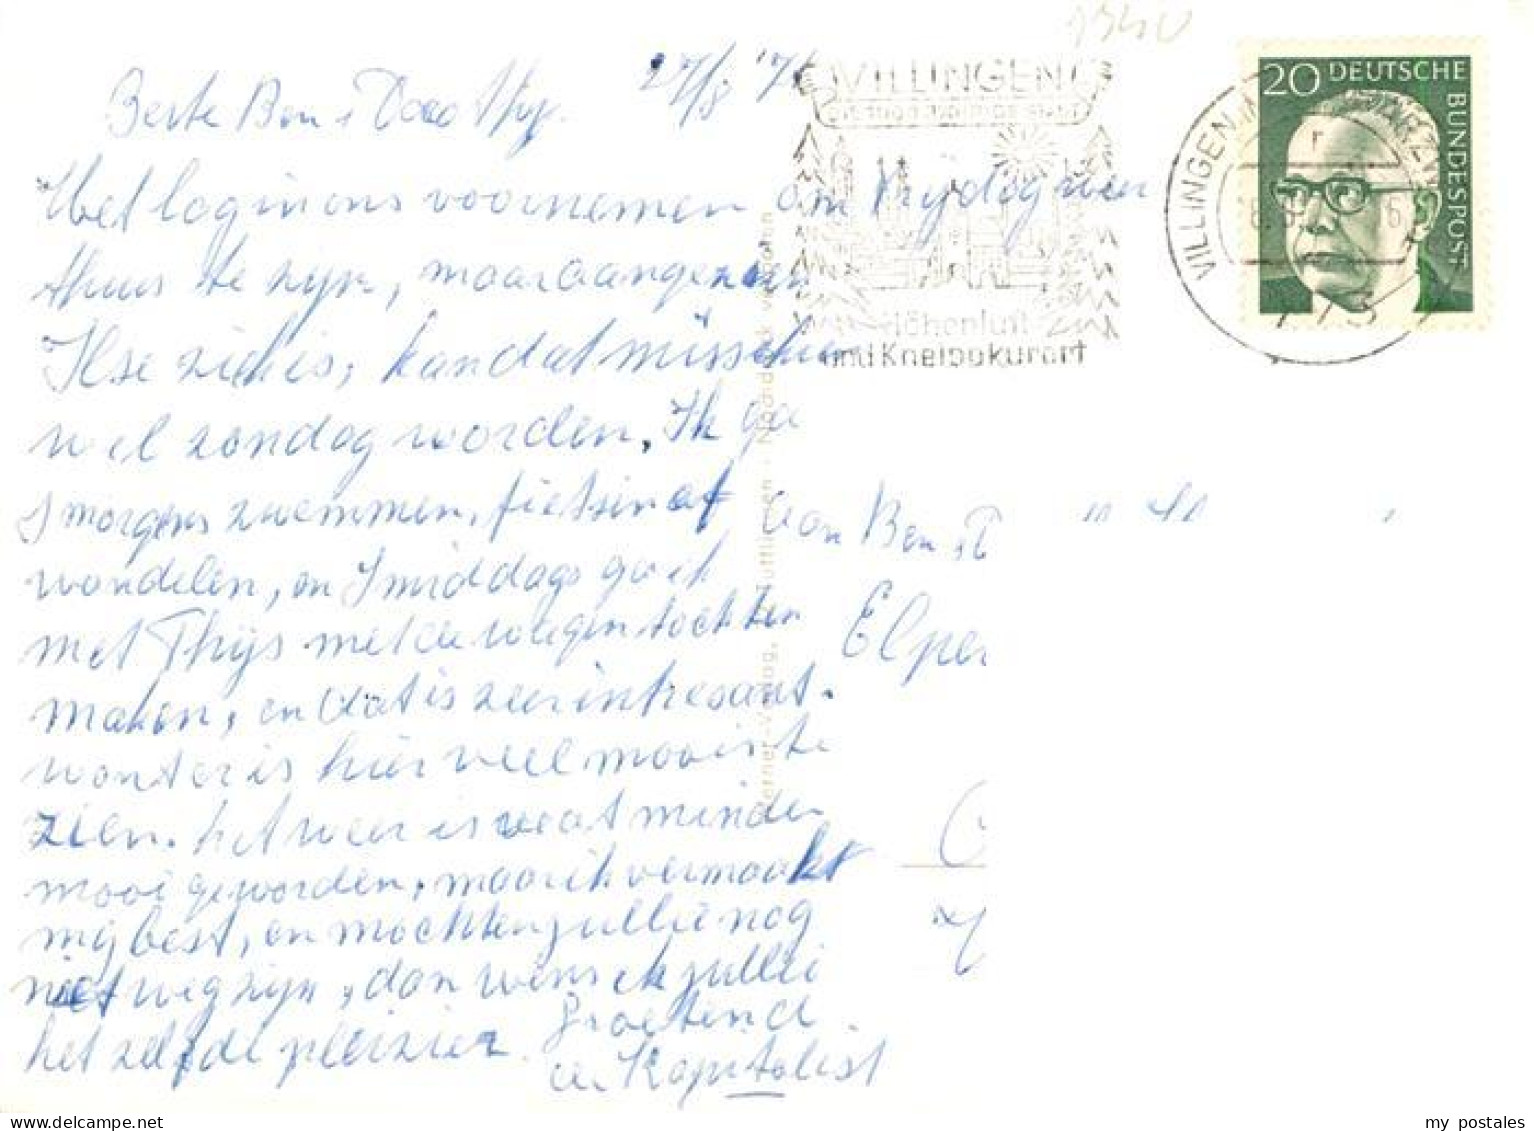 27/8 '7
Beste Ben Dorothy.
Het lag in ons voornemen om Vrijdag weer
thuis te zijn, maar aangezien
Ilse ziek is, kan dat misschien
wel zondag worden. Ik ga
's morgens zwemmen, fietsen of
wandelen, en 's middags ga ik
met Thijs met de wagen tochten
maken, en dat is zeer intresant.
want er is hier veel moois te
zien. het weer is wat minder
mooi geworden, maar ik vermaakt
mij best, en mochten jullie nog
niet weg zijn, dan wens ik jullie
het zelfde pleizier. Groetend
de Kapitalist
Aan Ben
Elper
1340
VILLINGEN
Höhenluft
und Kneippkurort
VILLINGEN
773
20 DEUTSCHE
BUNDESPOST
my postales